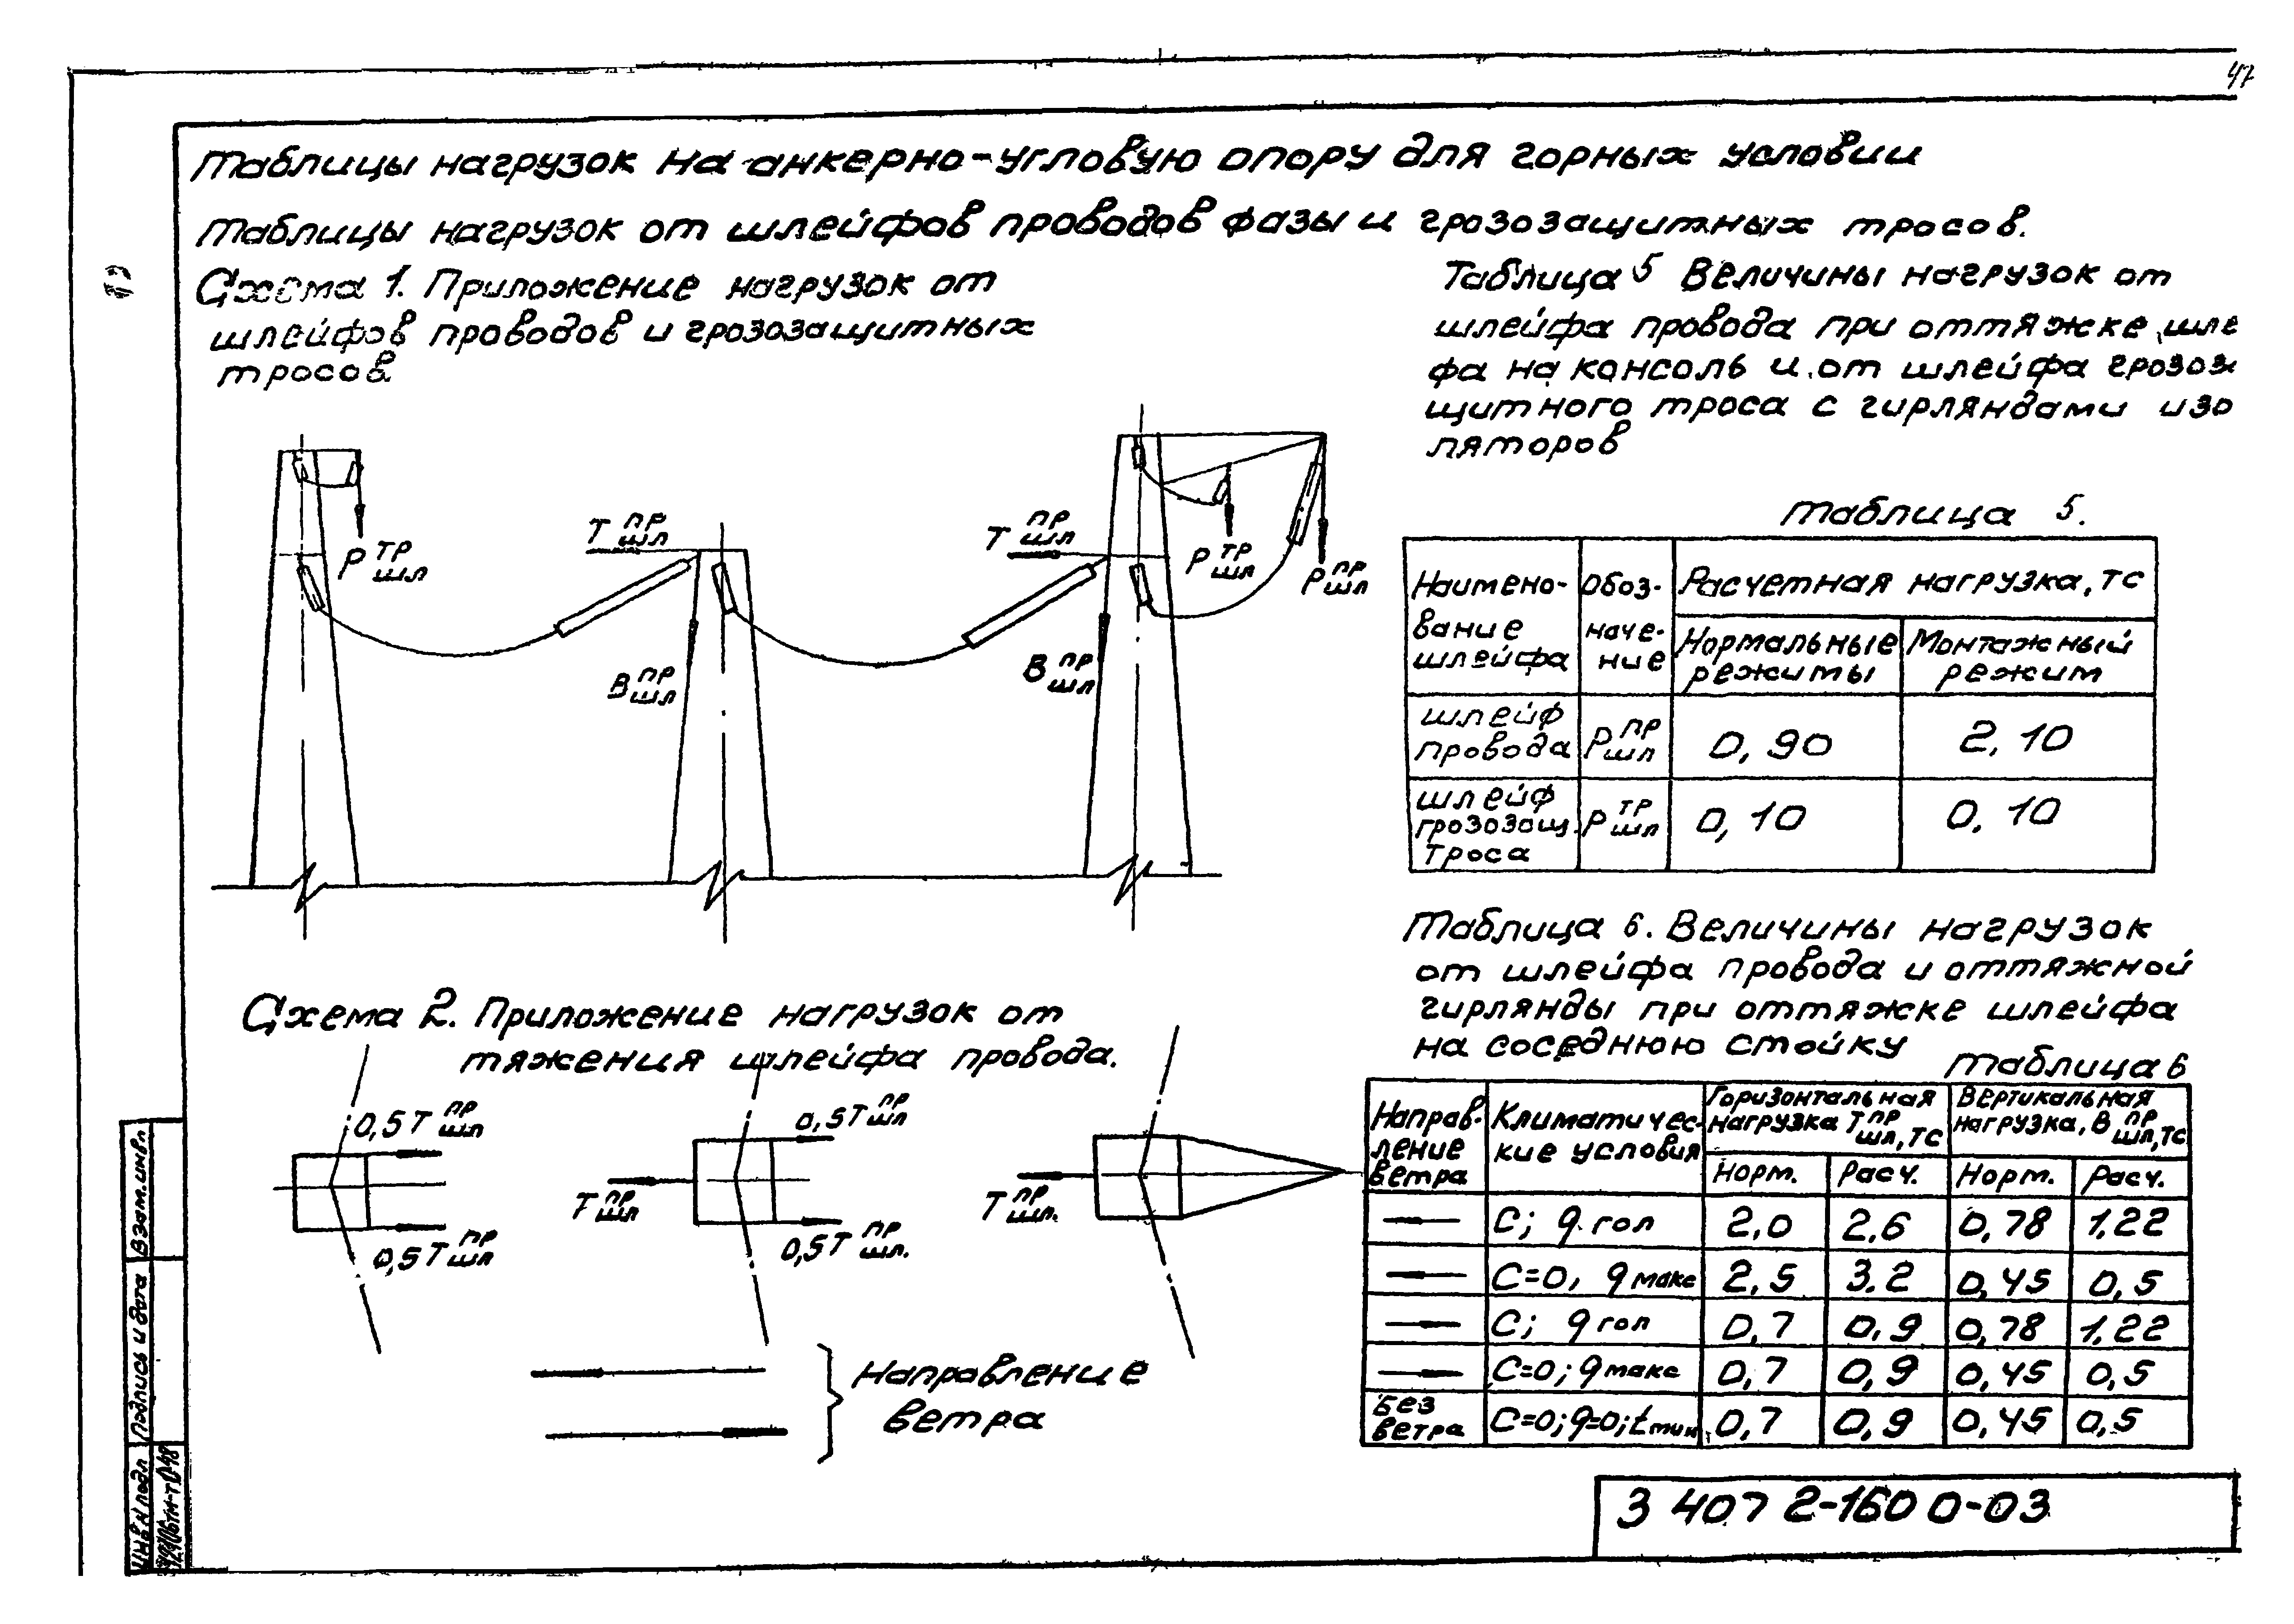 47
Таблицы нагрузок на анкерно-угловую опору для горных условий
Таблицы нагрузок от шлейфов проводов фазы и грозозащитных тросов.
Схема 1. Приложение нагрузок от
шлейфов проводов и грозозащитных
тросов.
Р тр шл
Т пр шл
В пр шл
Т пр шл
В пр шл
Р тр шл
Р пр шл
Схема 2. Приложение нагрузок от
тяжения шлейфа провода.
0,5Т пр шл
0,5Т пр шл
Т пр шл
0,5Т пр шл
0,5Т пр шл.
Т пр шл.
Направление
ветра
Таблица 5 Величины нагрузок от
шлейфа провода при оттяжке шле
фа на консоль и от шлейфа грозоз
щитного троса с гирляндами изо
ляторов
Таблица 5.
Наимено-
вание
шлейфа
Обоз-
наче-
ние
Расчетная нагрузка, тс
Нормальные
режимы
Монтажный
режим
шлейф
провода
Р пр шл
0,90
2,10
шлейф
грозозащ.
троса
Р тр шл
0,10
0,10
Таблица 6. Величины нагрузок
от шлейфа провода и оттяжной
гирлянды при оттяжке шлейфа
на соседнюю стойку
Таблица 6
Направ-
ление
ветра
Климатичес-
кие условия
Горизонтальная
нагрузка Т пр шл, тс
Вертикальная
нагрузка, В пр шл, тс
Норм. Расч. Норм. Расч.
С; q гол 2,0 2,6 0,78 1,22
С=0, q макс 2,5 3,2 0,45 0,5
С; q гол 0,7 0,9 0,78 1,22
С=0; q макс 0,7 0,9 0,45 0,5
Без
ветра
С=0; q=0; t мин 0,7 0,9 0,45 0,5
3 407 2-160 0-03
Взам.инв.
Подпись и дата
Инв.N подл